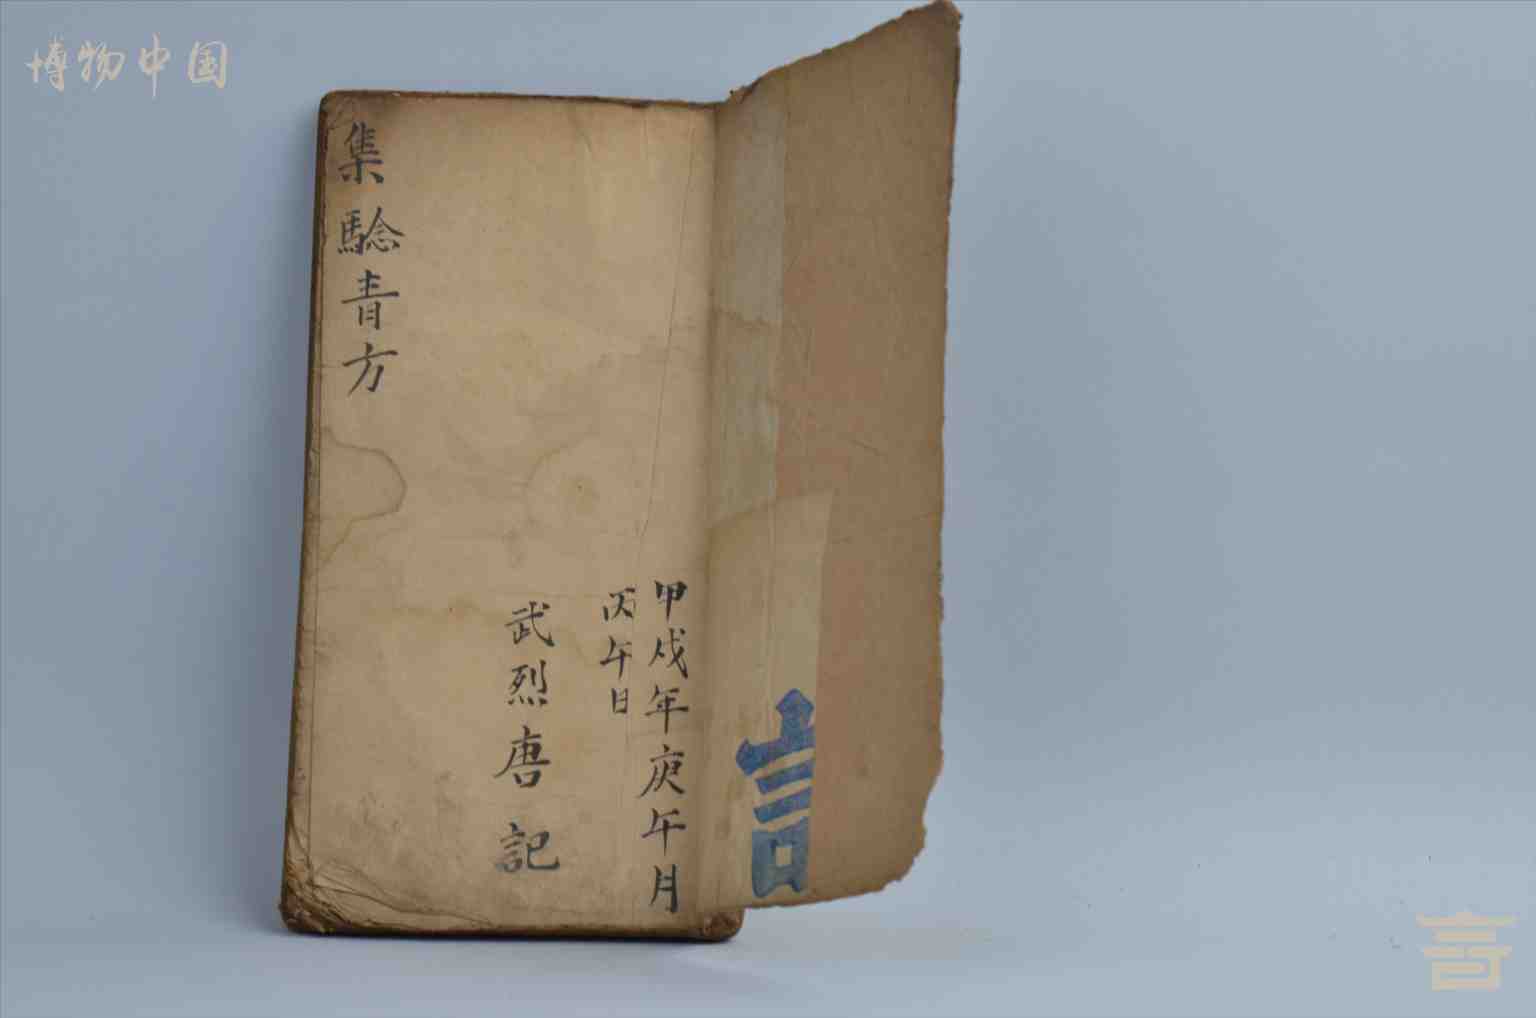 博物中国
甲戌年庚午月
丙午日
武烈唐記
集騐青方
言